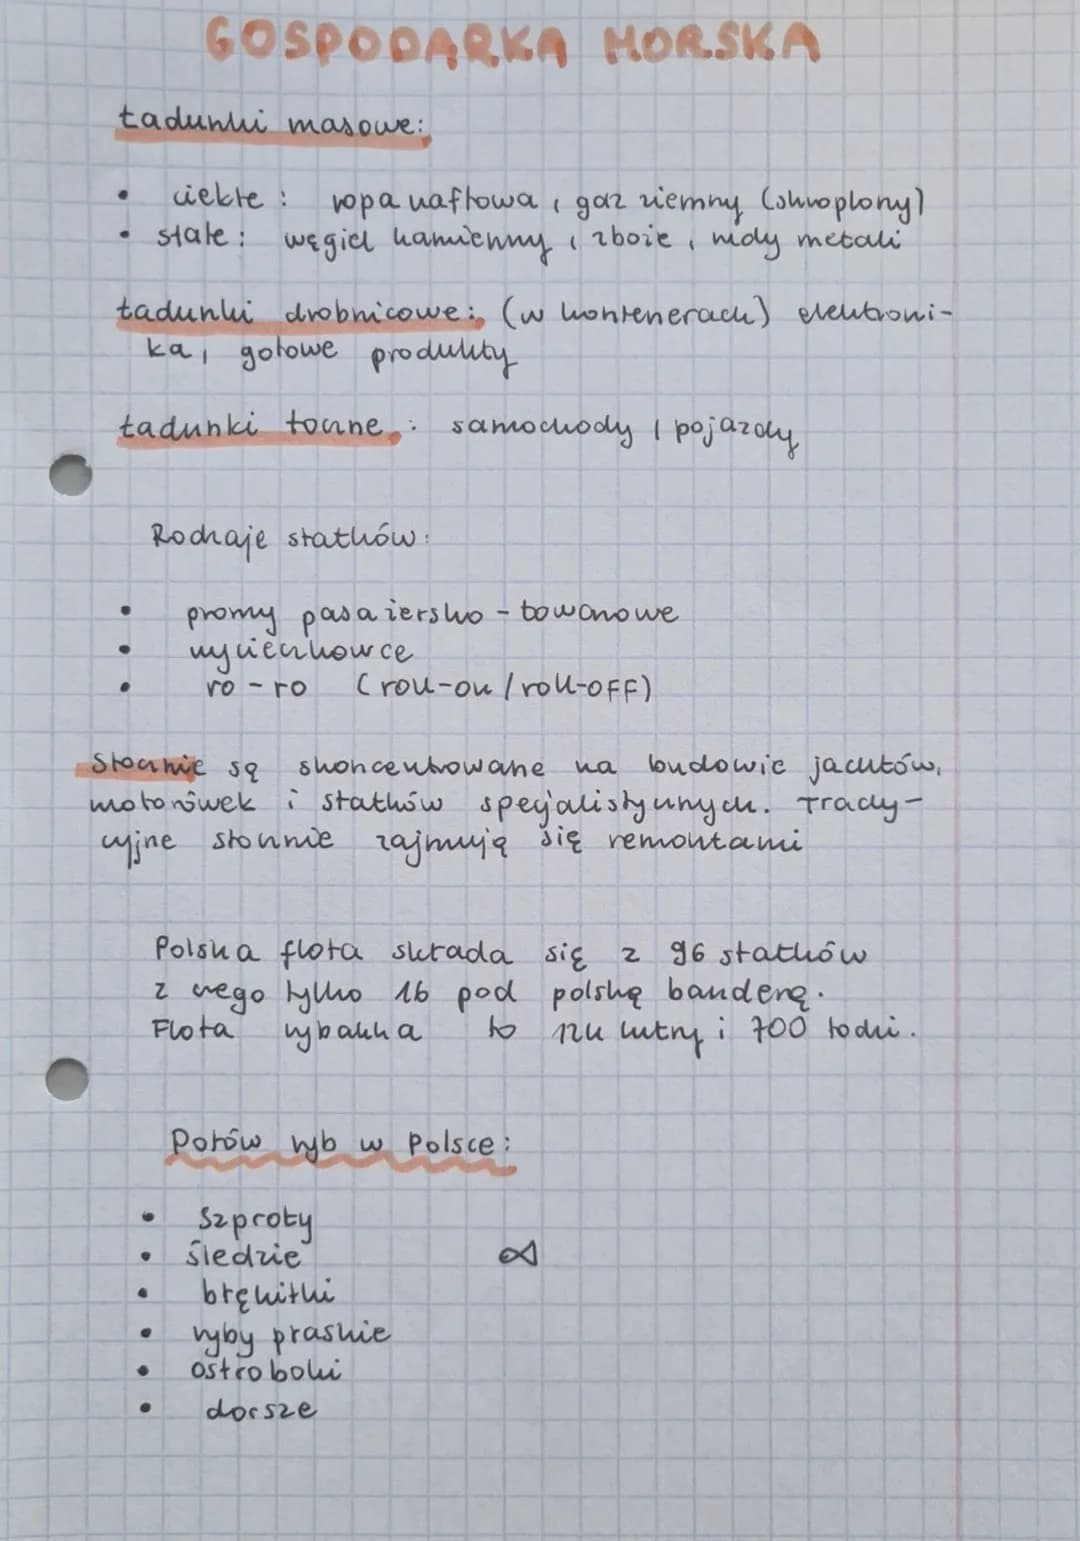 GOSPODARKA MORSKA
ładunki masowe:
• ciekłe : ropa naftowa, gaz ziemny (skroplony)
• stałe : węgiel kamienny, zboże, rudy metali
ładunki drobnicowe: (w kontenerach) elektroni-
ka, gotowe produkty
ładunki toczne : samochody, pojazdy
Rodzaje statków:
• promy pasażersko - towarowe
• wycieczkowce
• ro - ro (roll-on / roll-OFF)
Stocznie są skoncentrowane na budowie jachtów,
motorówek i statków specjalistycznych. Trady-
cyjne stocznie zajmują się remontami
Polska flota składa się z 96 statków
z czego tylko 16 pod polską banderą.
Flota rybacka to kutry i 700 łodzi.
Połów ryb w Polsce:
• szproty
• śledzie
• błękitki
• ryby płaskie
• ostroboki
• dorsze